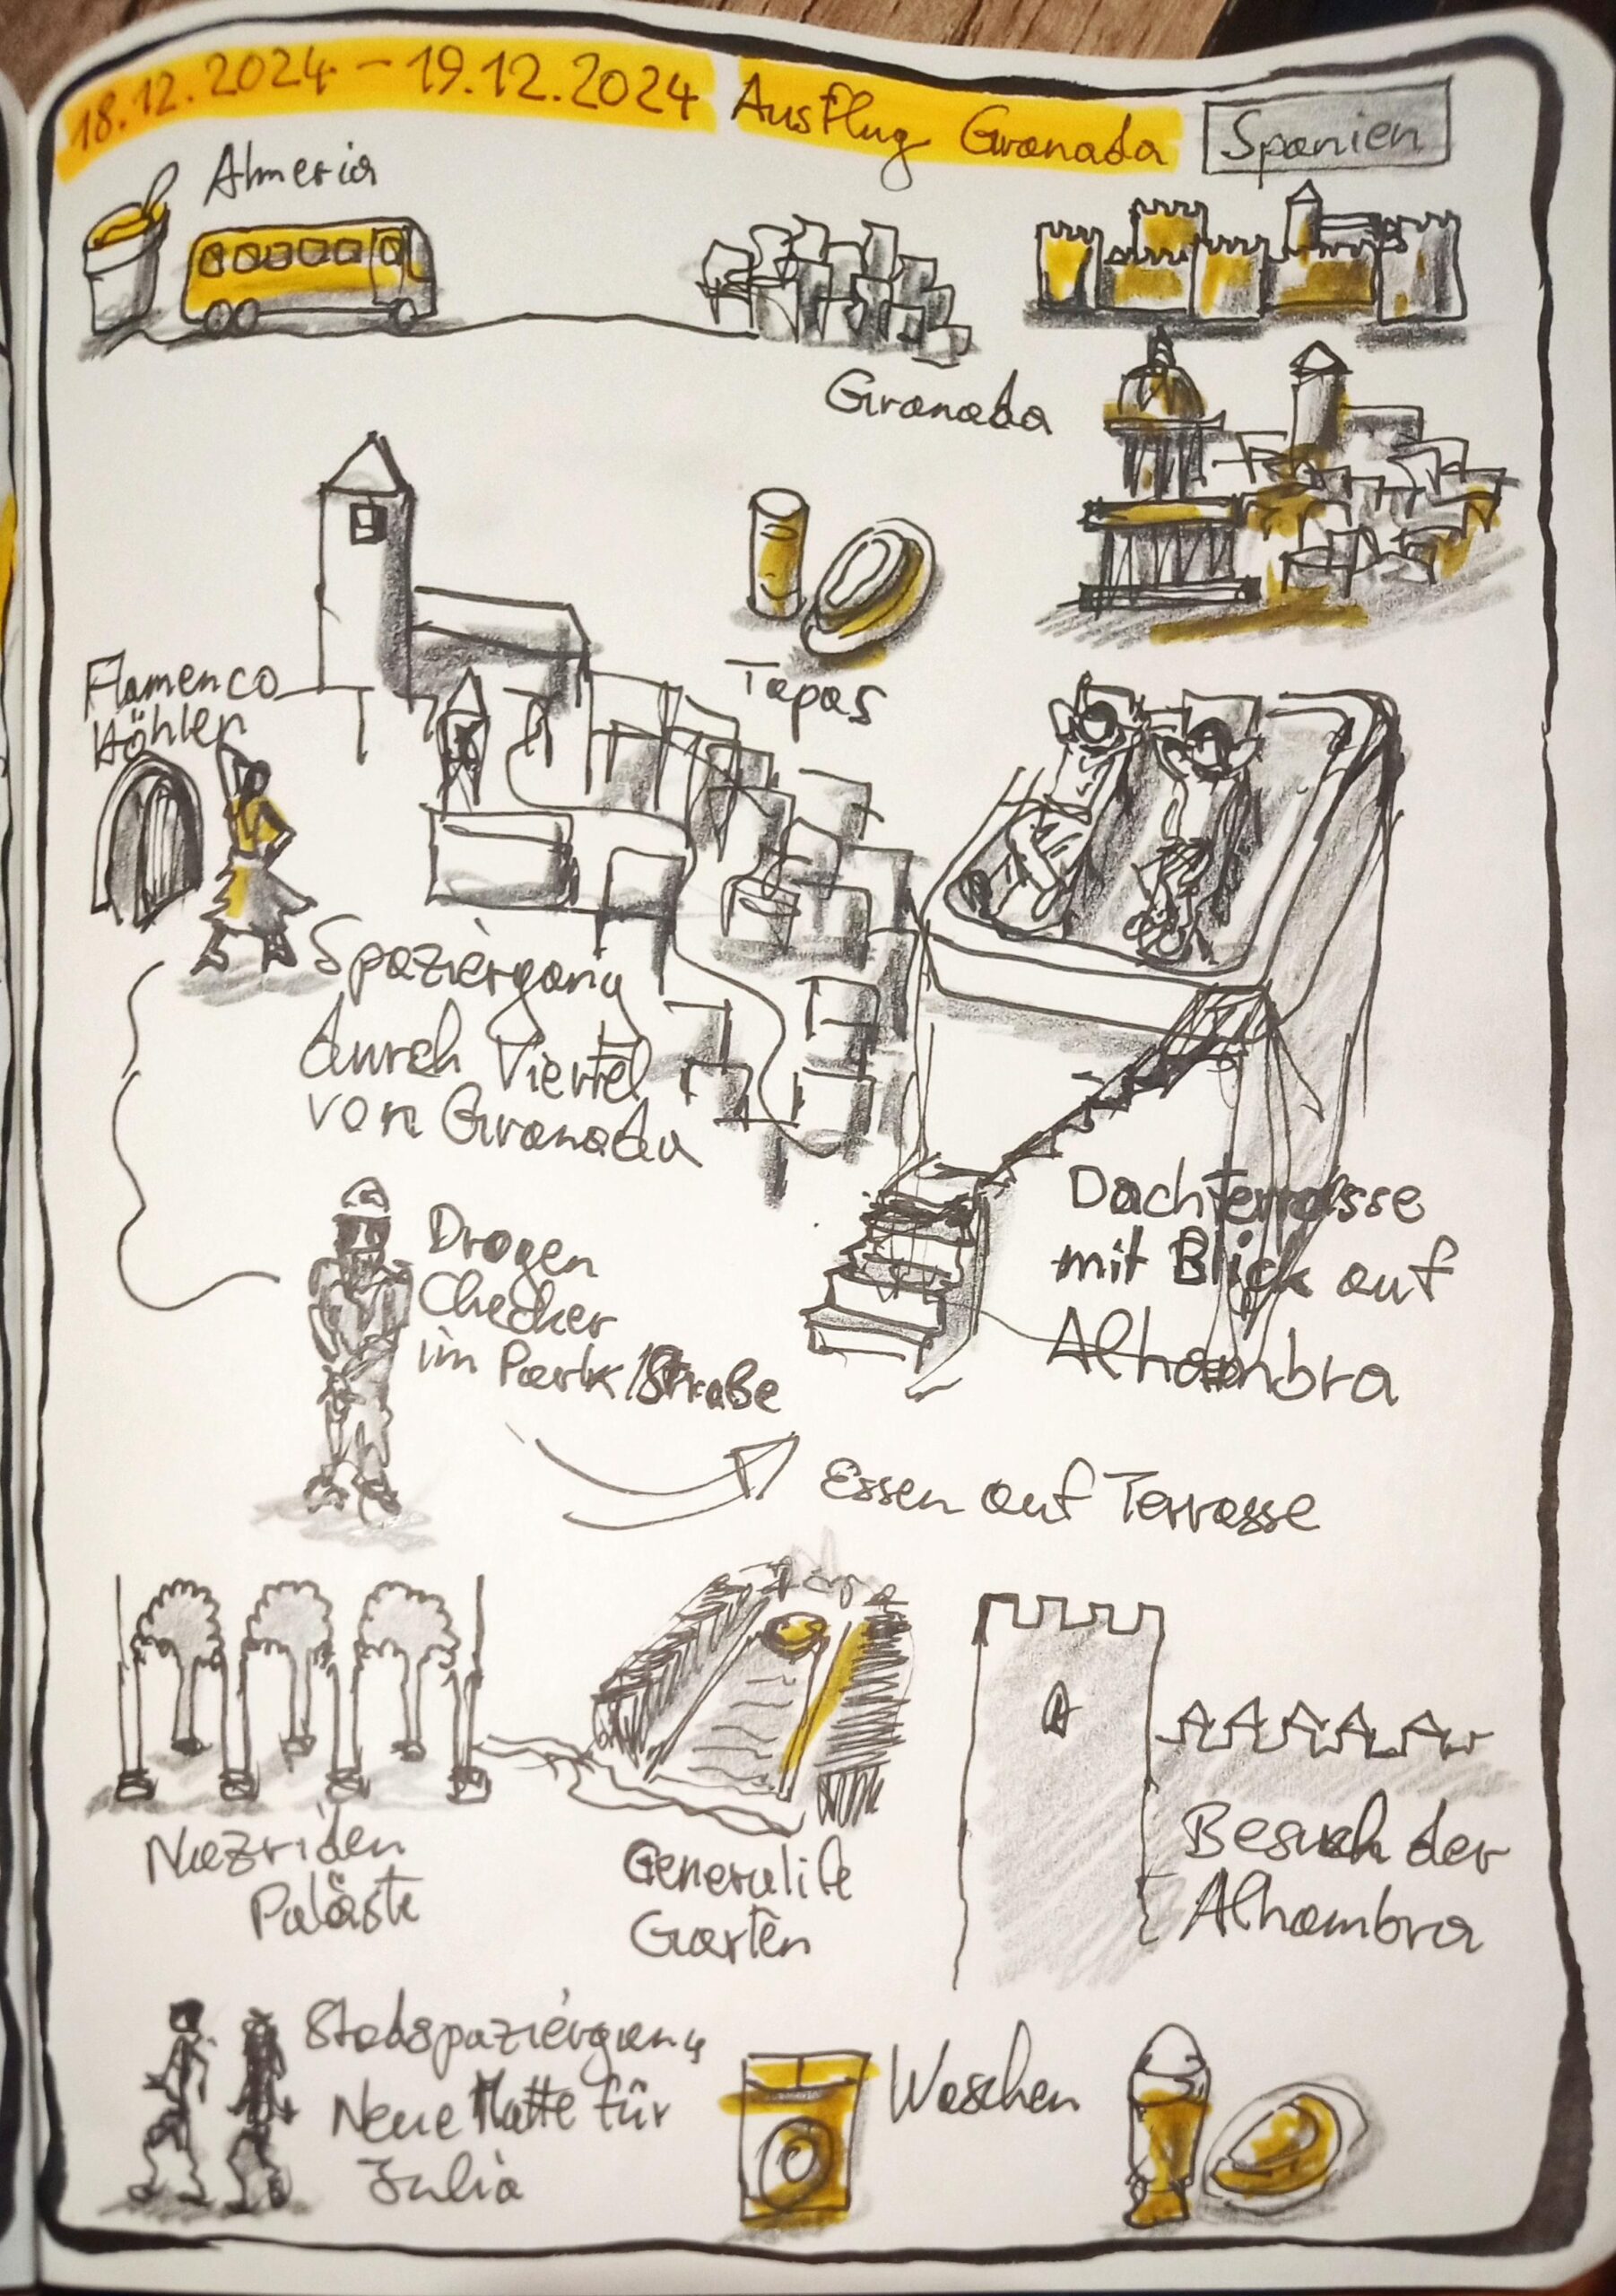 18.12.2024 – 19.12.2024 Ausflug Granada Spanien
Almeria
Granada
Tapas
Flamenco
Höhlen
Spaziergang
durch Viertel
von Granada
Dachterrasse
mit Blick auf
Alhambra
Drogen
Checker
im Park/Straße
Essen auf Terrasse
Nazriden
Paläste
Generalife
Garten
Besuch der
Alhambra
Stadspaziergang
Neue Matte für
Julia
Waschen